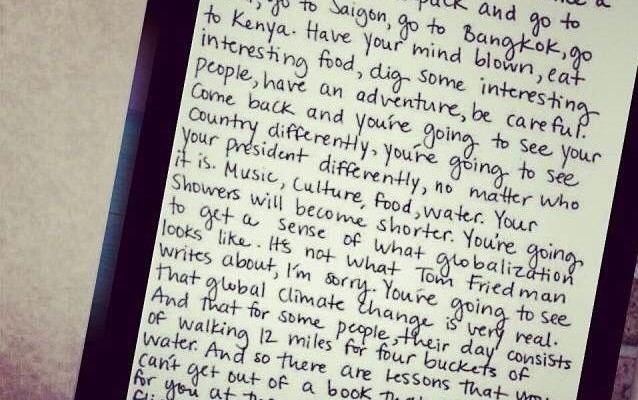 pack and go to
go to Saigon, go to Bangkok, go
to Kenya. Have your mind blown, eat
interesting food, dig some interesting
people, have an adventure, be careful.
Come back and you're going to see your
country differently, you're going to see
your president differently, no matter who
it is. Music, Culture, food, water. Your
Showers will become shorter. You're going
to get a sense of what globalization
looks like. It's not what Tom Friedman
writes about, I'm sorry. You're going to see
that global climate change is very real.
And that for some people, their day consists
of walking 12 miles for four buckets of
water. And so there are lessons that you
can't get out of a book that
for you at